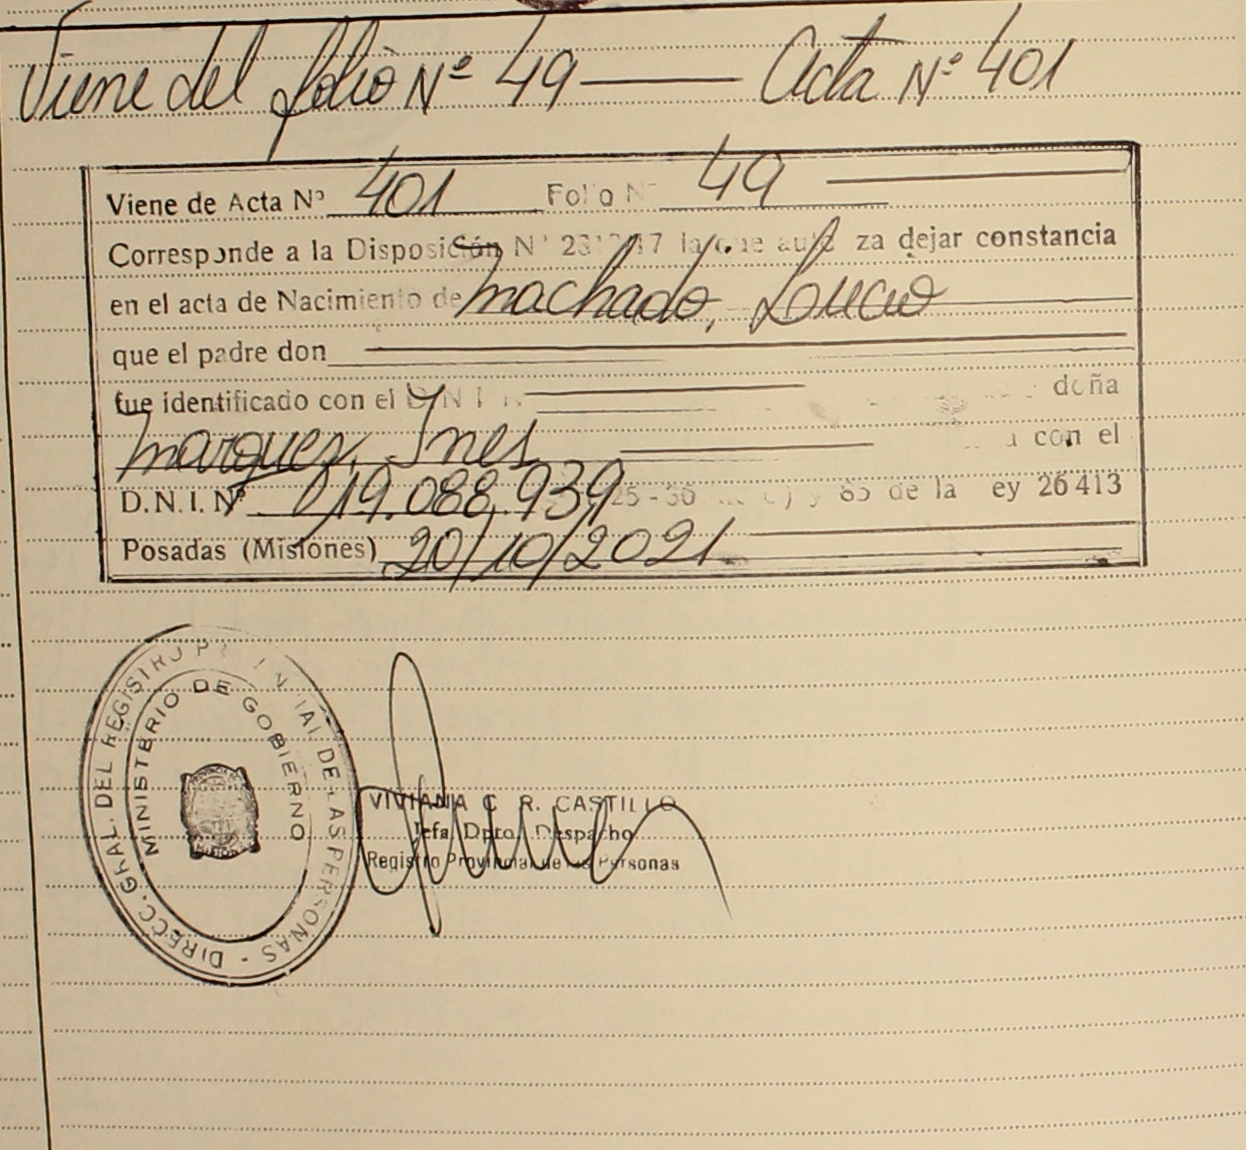 Viene del folio Nº 49 —— Acta Nº 401
Viene de Acta Nº 401 Folio N 49
Corresponde a la Disposición Nº za dejar constancia
en el acta de Nacimiento de Machado, Lucio
que el padre don
fue identificado con el D N I N doña
Marquez, Ines con el
D.N.I. Nº 19.088.939 25-36 y 85 de la ey 26413
Posadas (Misiones) 20/10/2021
DIRECC. GRAL. DEL REGISTRO PROVINCIAL DE LAS PERSONAS -
MINISTERIO DE GOBIERNO
VIVIANA C R. CASTILLO
Jefa Dpto. Despacho
Registro Provincial de las Personas